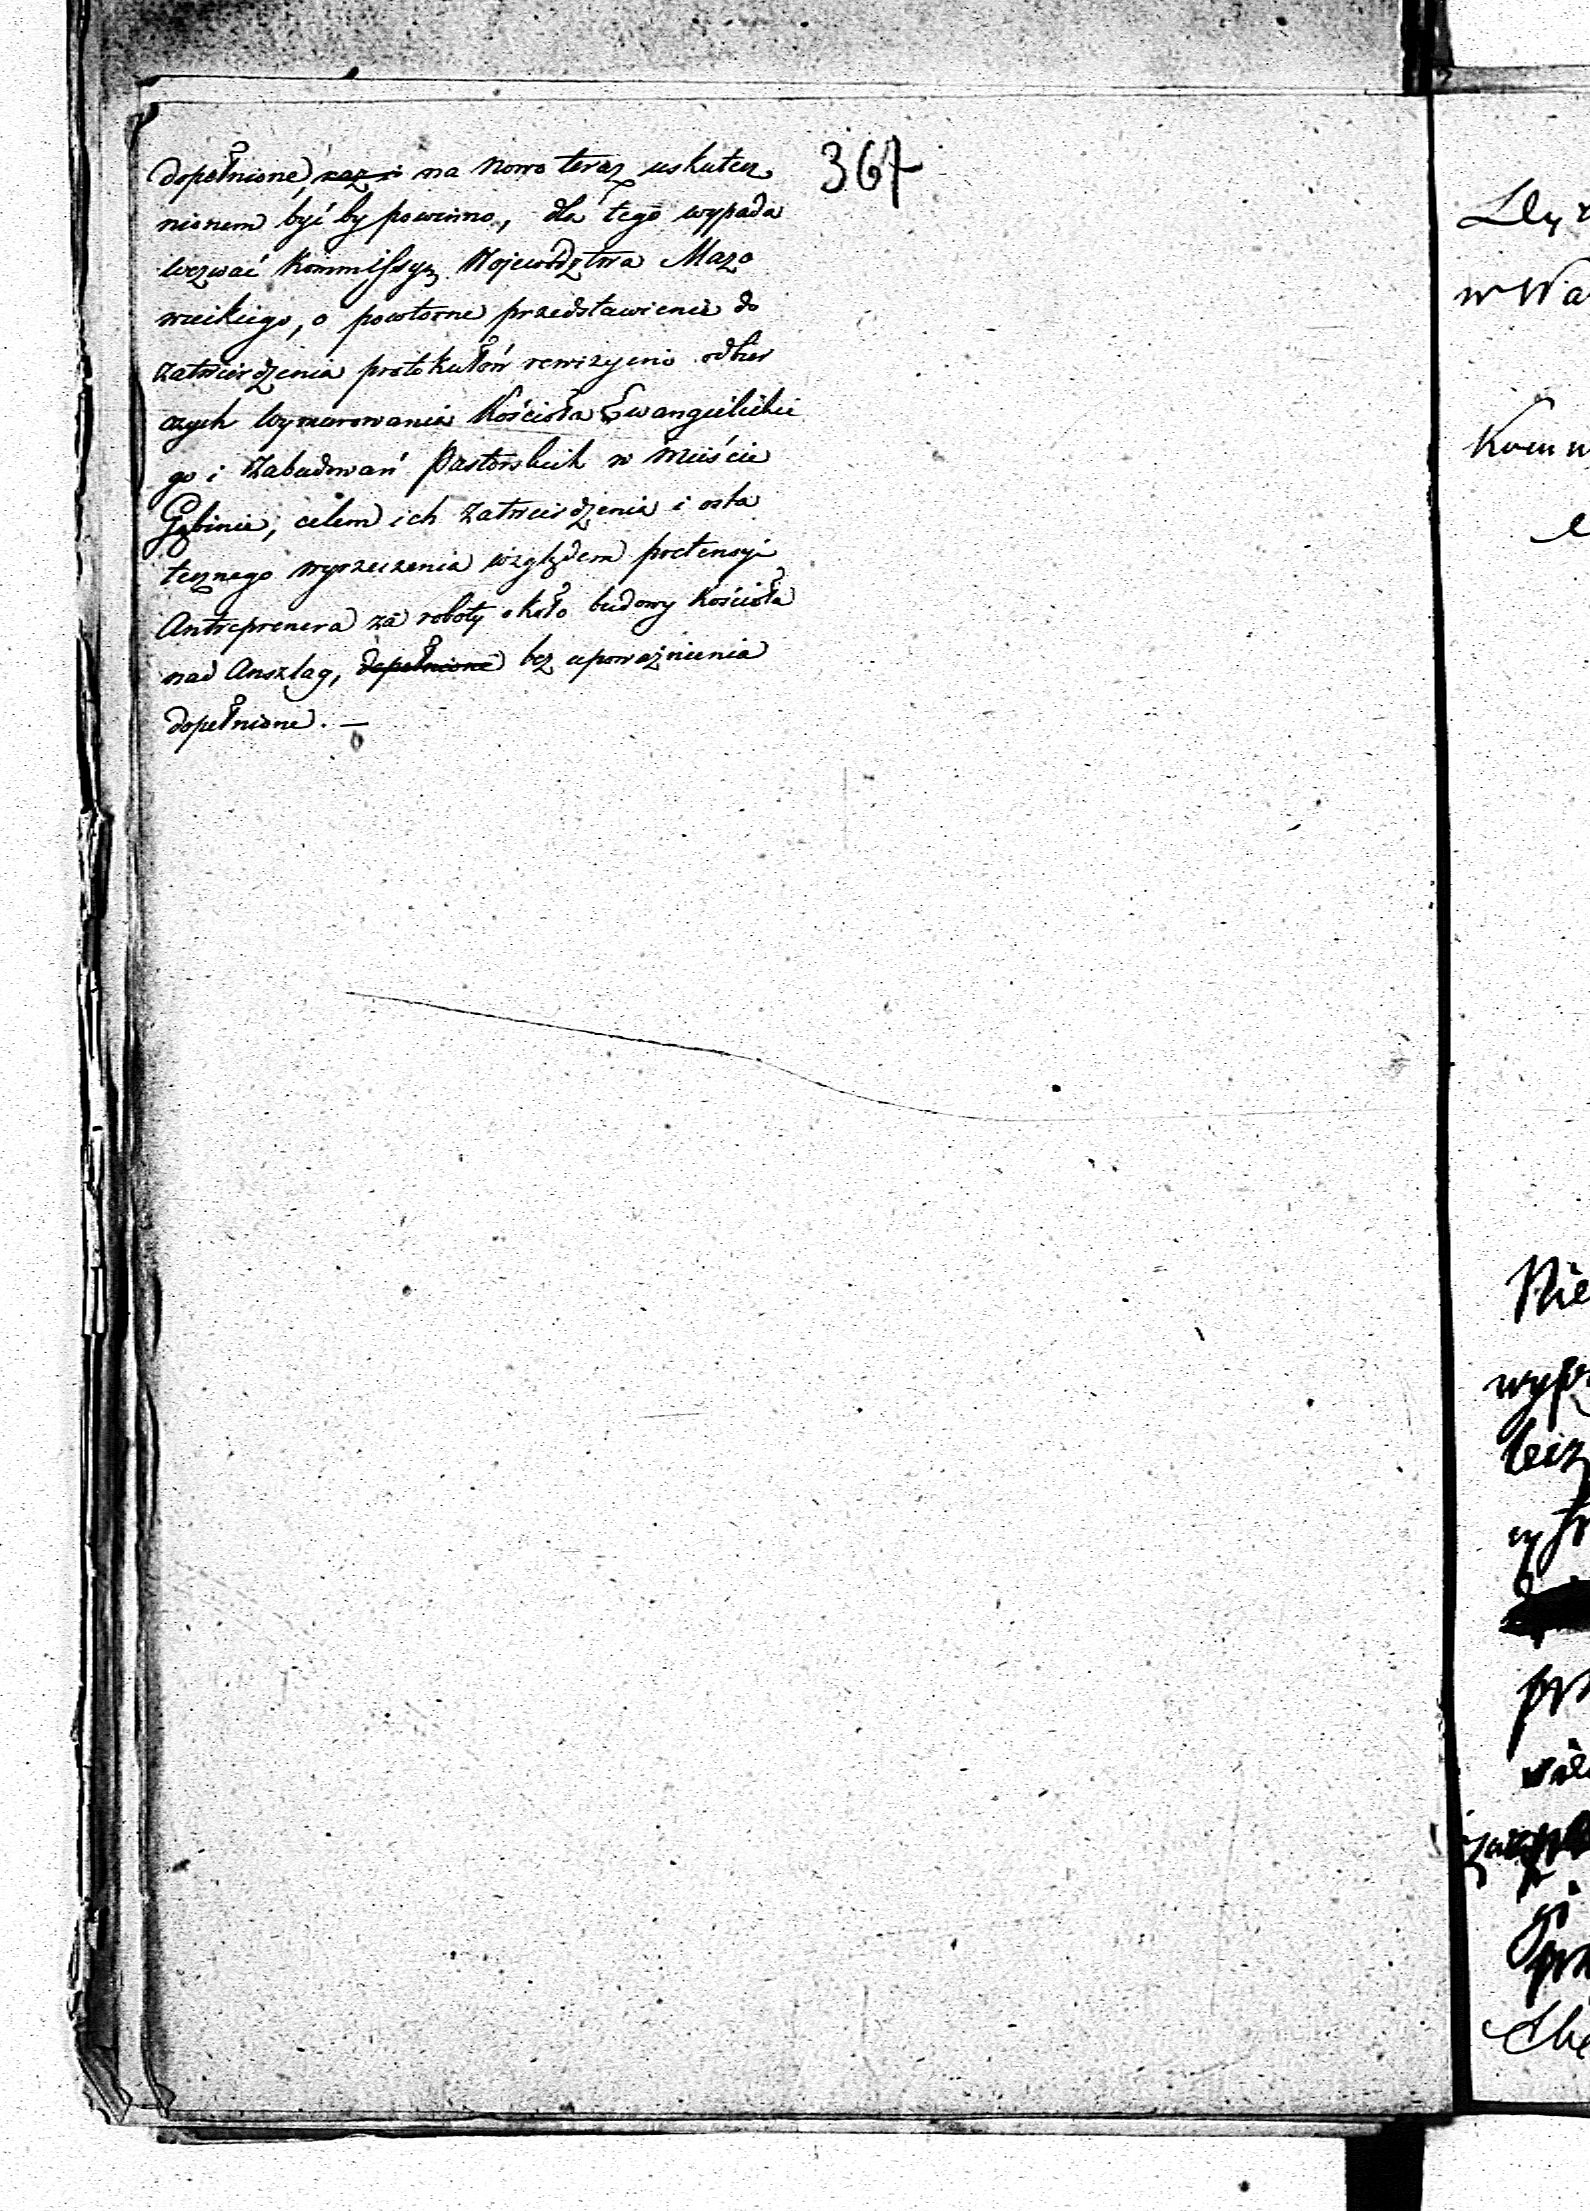 367
dopełnione, raz i na nowo teraz uskutecz
nionem być by powinno, dla tego wypada
wezwać Kommissyą Województwa Mazo
wieckiego, o powtorne przedstawienie do
zatwierdzenia protokułów rewizyjno odbior
czych wymurowania Kościoła Ewangielickie
go i Zabudowań Pastorskich w mieście
Gąbinie, celem ich zatwierdzenia i osta
tecznego wyrzeczenia względem pretensyi
Antreprenera za roboty około budowy Kościoła
nad Anszlag, dopełnione bez upoważnienia
dopełnione. —